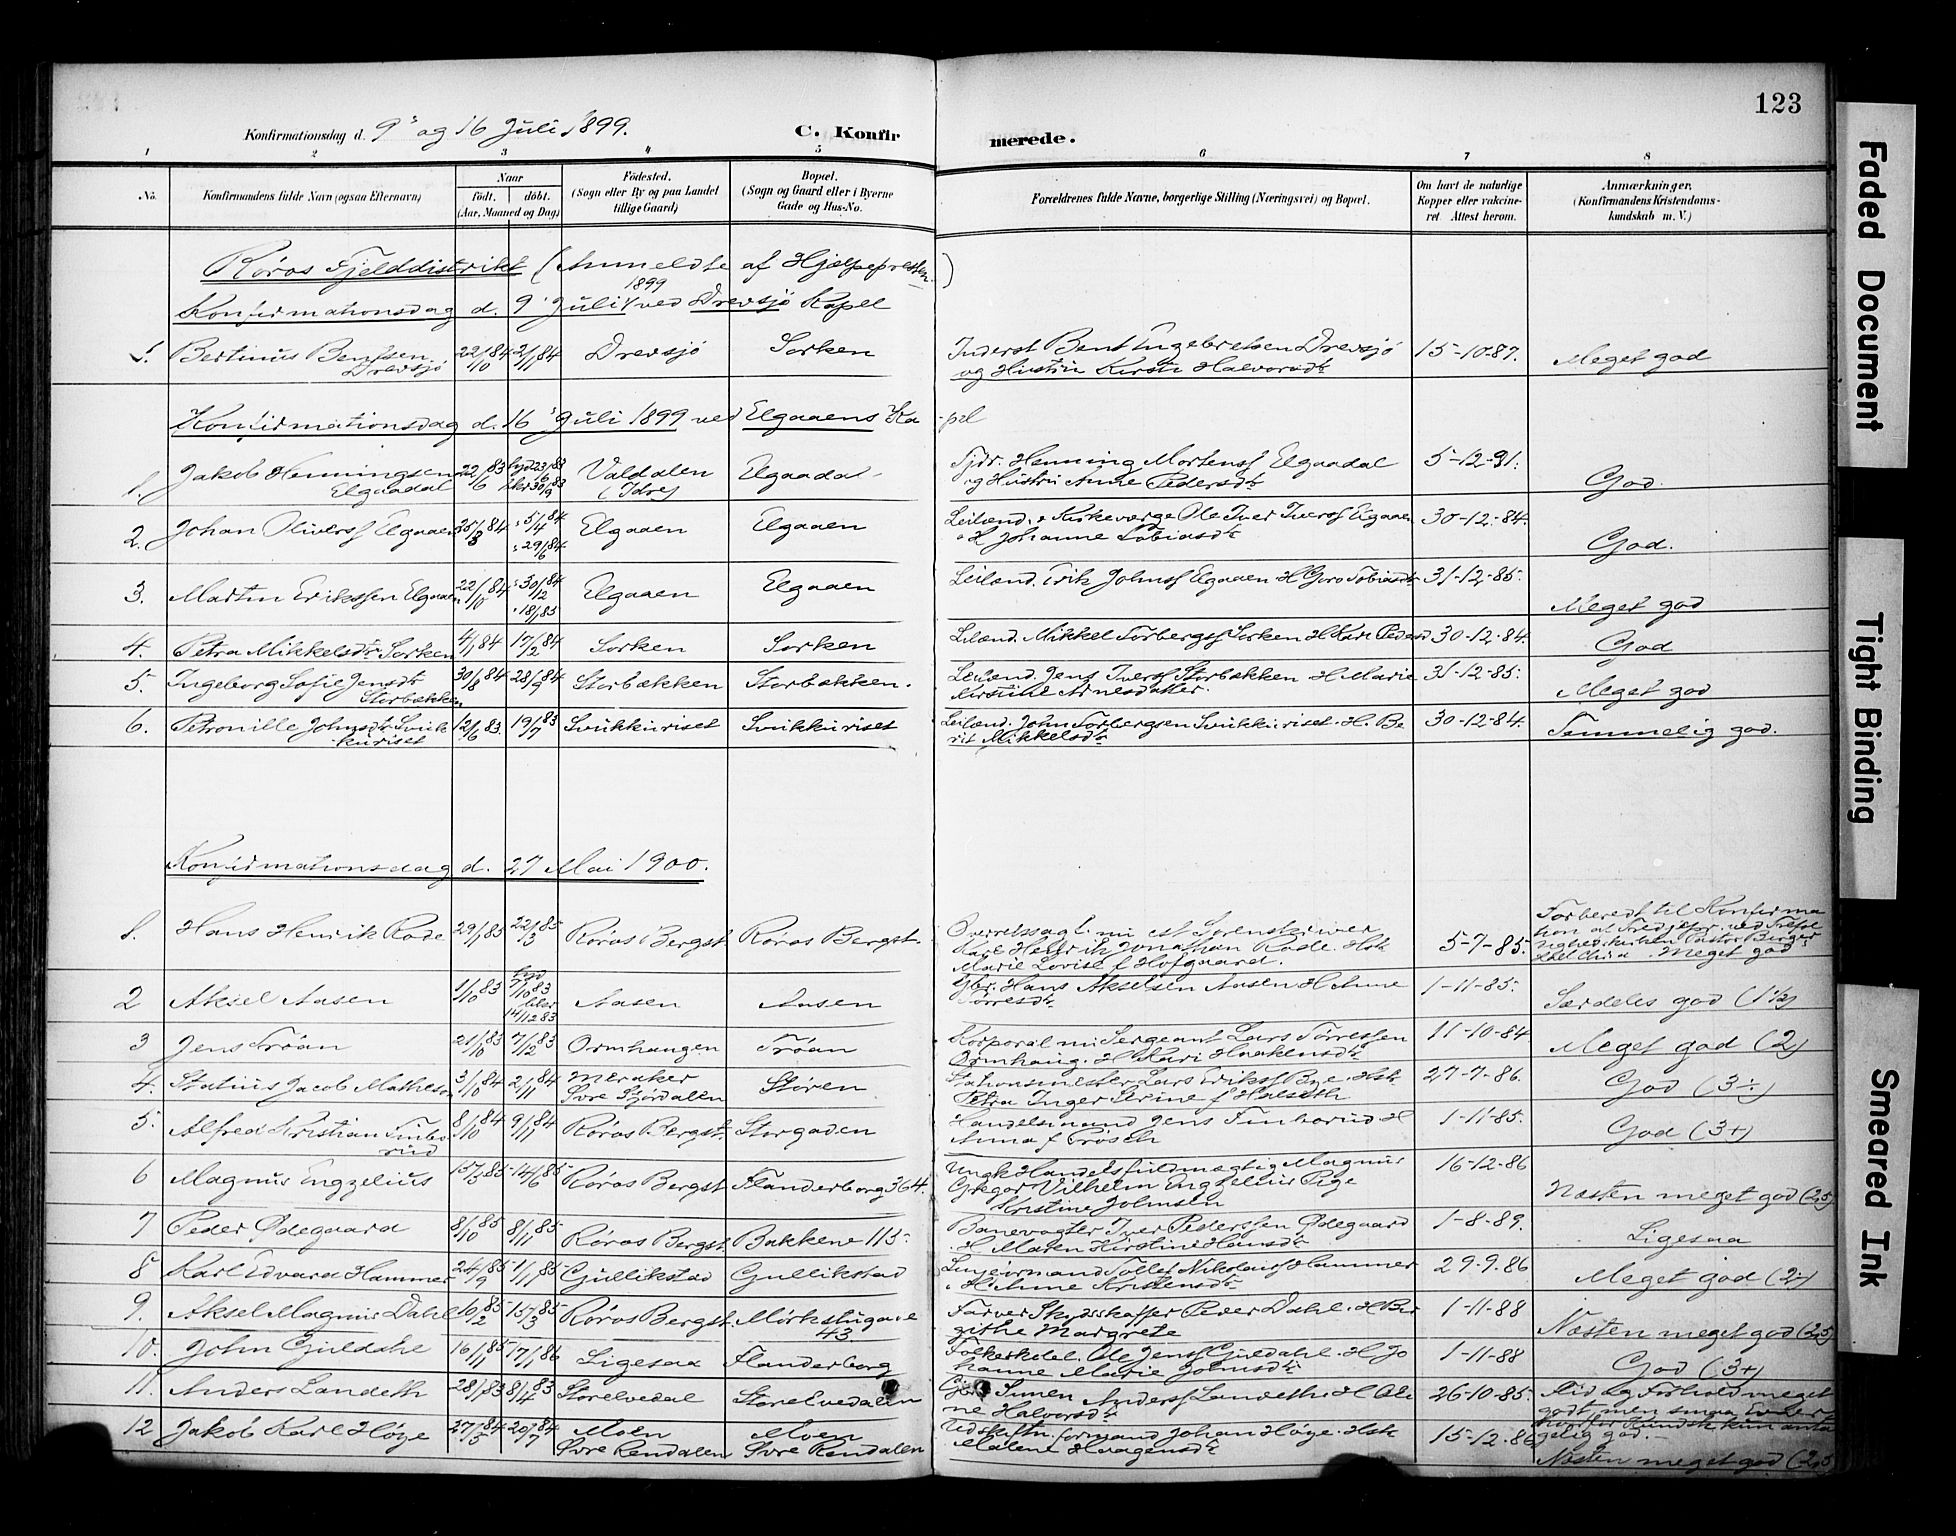 123
Konfirmationsdag d. 9' og 16 Juli 1899. C. Konfirmerede.
1 2 3 4 5 6 7 8
No. Konfirmandens fulde Navn (ogsaa Efternavn) Naar født. døbt. (Aar, Maaned og Dag) Fødested. (Sogn eller By og paa Landet tillige Gaard) Bopæl. (Sogn og Gaard eller i Byerne Gade og Hus-No. Forældrenes fulde Navne, borgerlige Stilling (Næringsvei) og Bopæl. Om havt de naturlige Kopper eller vakcineret. Attest herom. Anmærkninger, (Konfirmandens Kristendomskundskab m. V.)
Røros Fjelddistrikt (Anmeldte af Hjælpepresten)
Konfirmationsdag d. 9' Juli 1899 ved Drevsjø Kapel
1. Bertinus Bentsen Drevsjø 22/10 84 2/11 84 Drevsjø Sorken Inderst Bent Ingebretsen Drevsjø og Hustru Kirsti Halvorsdtr 15-10-87. Meget god
Konfirmationsdag d. 16' Juli 1899 ved Elgaaens Ka-pel
1. Jakob Henningsen Elgaadal 22/6 83 23/6 83 30/9 83 Valdalen (Idre) Elgaadal Henning Mortens Elgaadal og Hustru Anne Pedersdtr 5-12-91. God.
2. Johan Olivers Elgaaen 25/3 84 5/4 84 29/6 84 Elgaaen Elgaaen Leilænd. & Kirkeverge Ole Iver Ivers Elgaaen & H Johanne Tobiasdtr 30-12-84. God.
3. Martin Eriksen Elgaaen 22/10 84 30/12 84 18/1 85 Elgaaen Elgaaen Leilænd. Erik Johns Elgaaen H Goro Tobiasdtr 31-12-85. Meget god
4. Petra Mikkelsdtr Sorken 4/1 84 17/2 84 Sorken Sorken Leilænd. Mikkel Torbergs Sorken H Kari Pedersd 30-12-84. God
5. Ingeborg Sofie Jensdtr Storbækken 30/8 84 28/9 84 Storbækken Storbækken. Leilænd. Jens Ivers Storbækken H Marie Kirstine Arnesdatter. 31-12-85. Meget god
6. Petronille Johnsdtr Svukkuriset 12/6 83. 19/7 83 Svukkuriset Svukkuriset Leilænd. John Torbergsen Svukkuriset. H. Berit Mikkelsdtr 30-12-84. Temmelig god.
Konfirmationsdag d. 27 Mai 1900.
1. Hans Henrik Rode 29/1 85 22/3 85 Røros Bergst Røros Bergst. Overretssagf. nu cst Sorenskriver Karl Henrik Jonathan Rode. Hstr Marie Lovise f Hofgaard. 5-7-85. Forberedt til Konfirmation af Pastor Meget god
2 Aksel Aasen 1/10 83 7/10 83 14/12 83 Aasen Aasen Gbr. Hans Akselsen Aasen H Anne Torresdtr 1-11-85. Særdeles god (1½)
3 Jens Trøan 21/10 83 7/12 83 Ormhaugen Trøan Korporal nu Sergeant Lars Torresen Ormhaug. H Kari Haakensdtr 11-10-84. Meget god (2)
4. Statius Jacob Matheson 3/10 84 2/11 84 Meraker Øvre Stjørdalen Støren Stationsmester Lars Eriks Bye. Hstr Petra Inger Serine f Halseth 27-7-86. God (3÷)
5. Alfred Kristian Finborud 8/10 84 9/11 84 Røros Bergst. Storgaden Handelsmand Jens Finborud H Anna f Prøsch 1-11-85. God (3+)
6 Magnus Engzelius 15/3 85 14/6 85 Røros Bergst Flanderborg 364. Ungk Handelsfuldmægtig Magnus Gregor Vilhelm Engzelius Pige Kristine Johnsen 16-12-86 Næsten meget god (2,5)
7 Peder Ødegaard 8/10 85 8/11 85 Røros Bergst. Bakkene 113 Banevogter Iver Pedersen Ødegaard H Maren Kirstine Hansdtr 1-8-89. Ligesaa
8 Karl Edvard Hammer 24/9 85 1/11 85 Gullikstad Gullikstad Linjeformand Tollef Nikolaus Hammer H Anne Kristensdtr 29-9-86 Meget god (2÷)
9. Aksel Magnus Dahl 10/2 85 15/3 85 Røros Bergst. Mørkstugade 43 Farver Skydsskaffer Peder Dahl. H Birgithe Margrete 1-11-88 Næsten meget god (2,5)
10. John Guldahl 16/11 85 17/1 86 Ligesaa Flanderborg Folkeskolel. Ole Jens Guldahl. H Johanne Marie Johnsdtr 1-11-88 God (3+)
11. Anders Landeth 28/1 83 8/4 83 Storelvedal Storelvedalen Simen Anders Landeth H Oline Halvorsdtr 26-10-85. Flid og Forhold meget godt, men smaa Evner hvorfor Kundsk kun antagelig god.
12 Jakob Karl Høye 27/5 84 20/7 84 Moen Øvre Rendalen Moen Øvre Rendalen Udskiftn. formand Johan Høye. Hstr Malene Haagensdtr 15-12-86 Næsten meget god (2,5)
Faded Document
Tight Binding
Smeared Ink